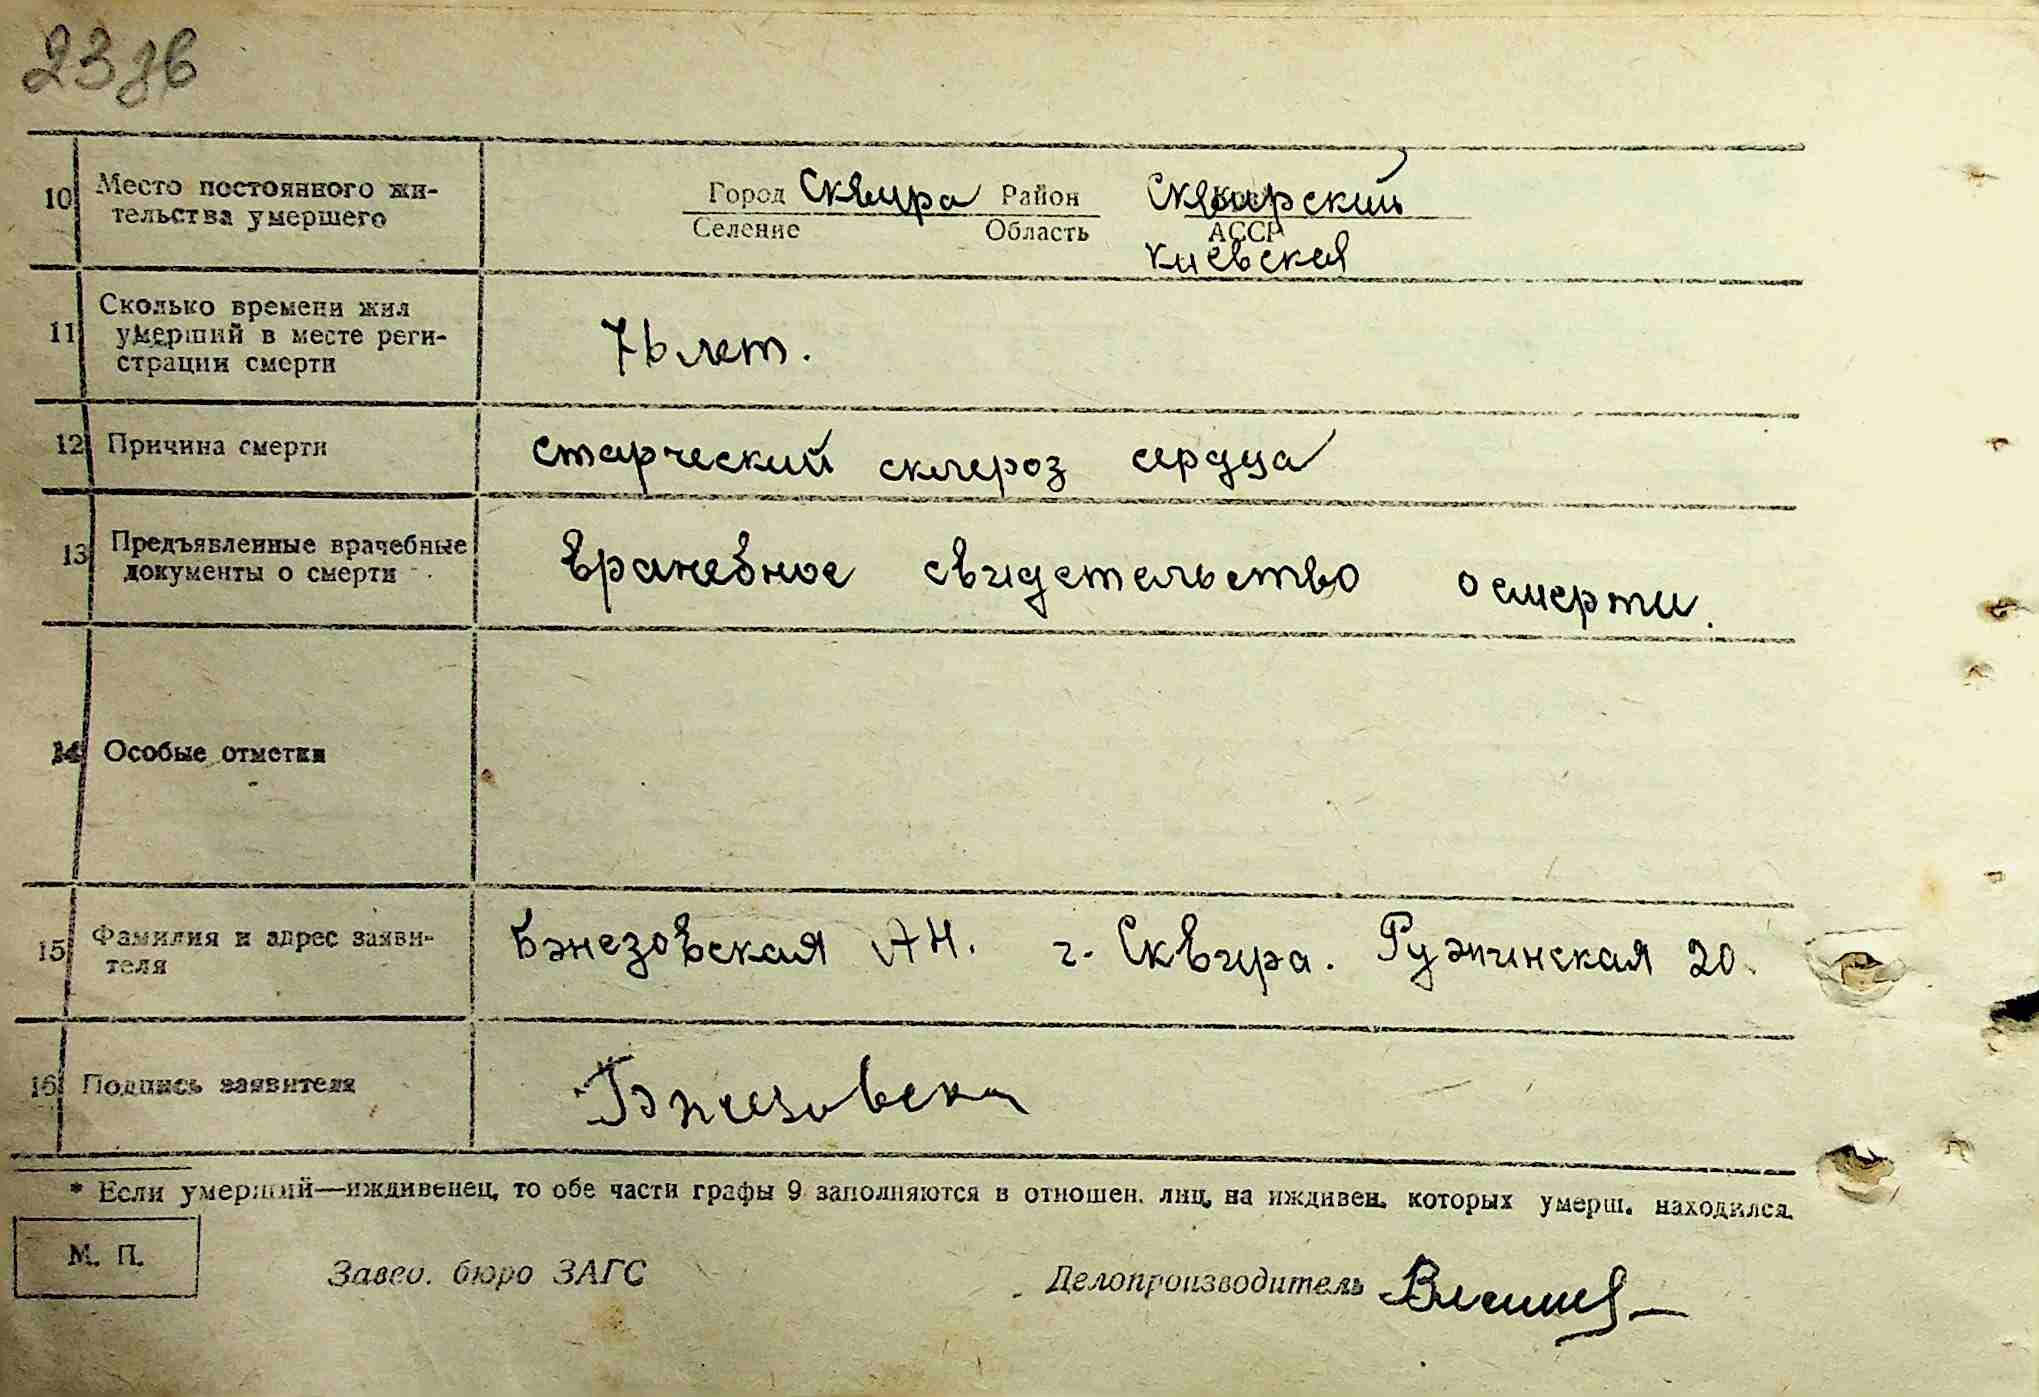 23 зв
10 Место постоянного жи-
тельства умершего
Город Сквира Район Сквирский
Селение Область АССР
Киевская
11 Сколько времени жил
умерший в месте реги-
страции смерти
76 лет.
12 Причина смерти старческий склероз сердца
13 Предъявленные врачебные
документы о смерти
Врачебное свидетельство о смерти.
14 Особые отметки
15 Фамилия и адрес заяви-
теля
Бжезовская А Н. г. Сквира. Ружинская 20.
16 Подпись заявителя Бжезовска
* Если умерший—иждивенец, то обе части графы 9 заполняются в отношен. лиц, на иждивен. которых умерш. находился.
М. П.
Завед. бюро ЗАГС Делопроизводитель